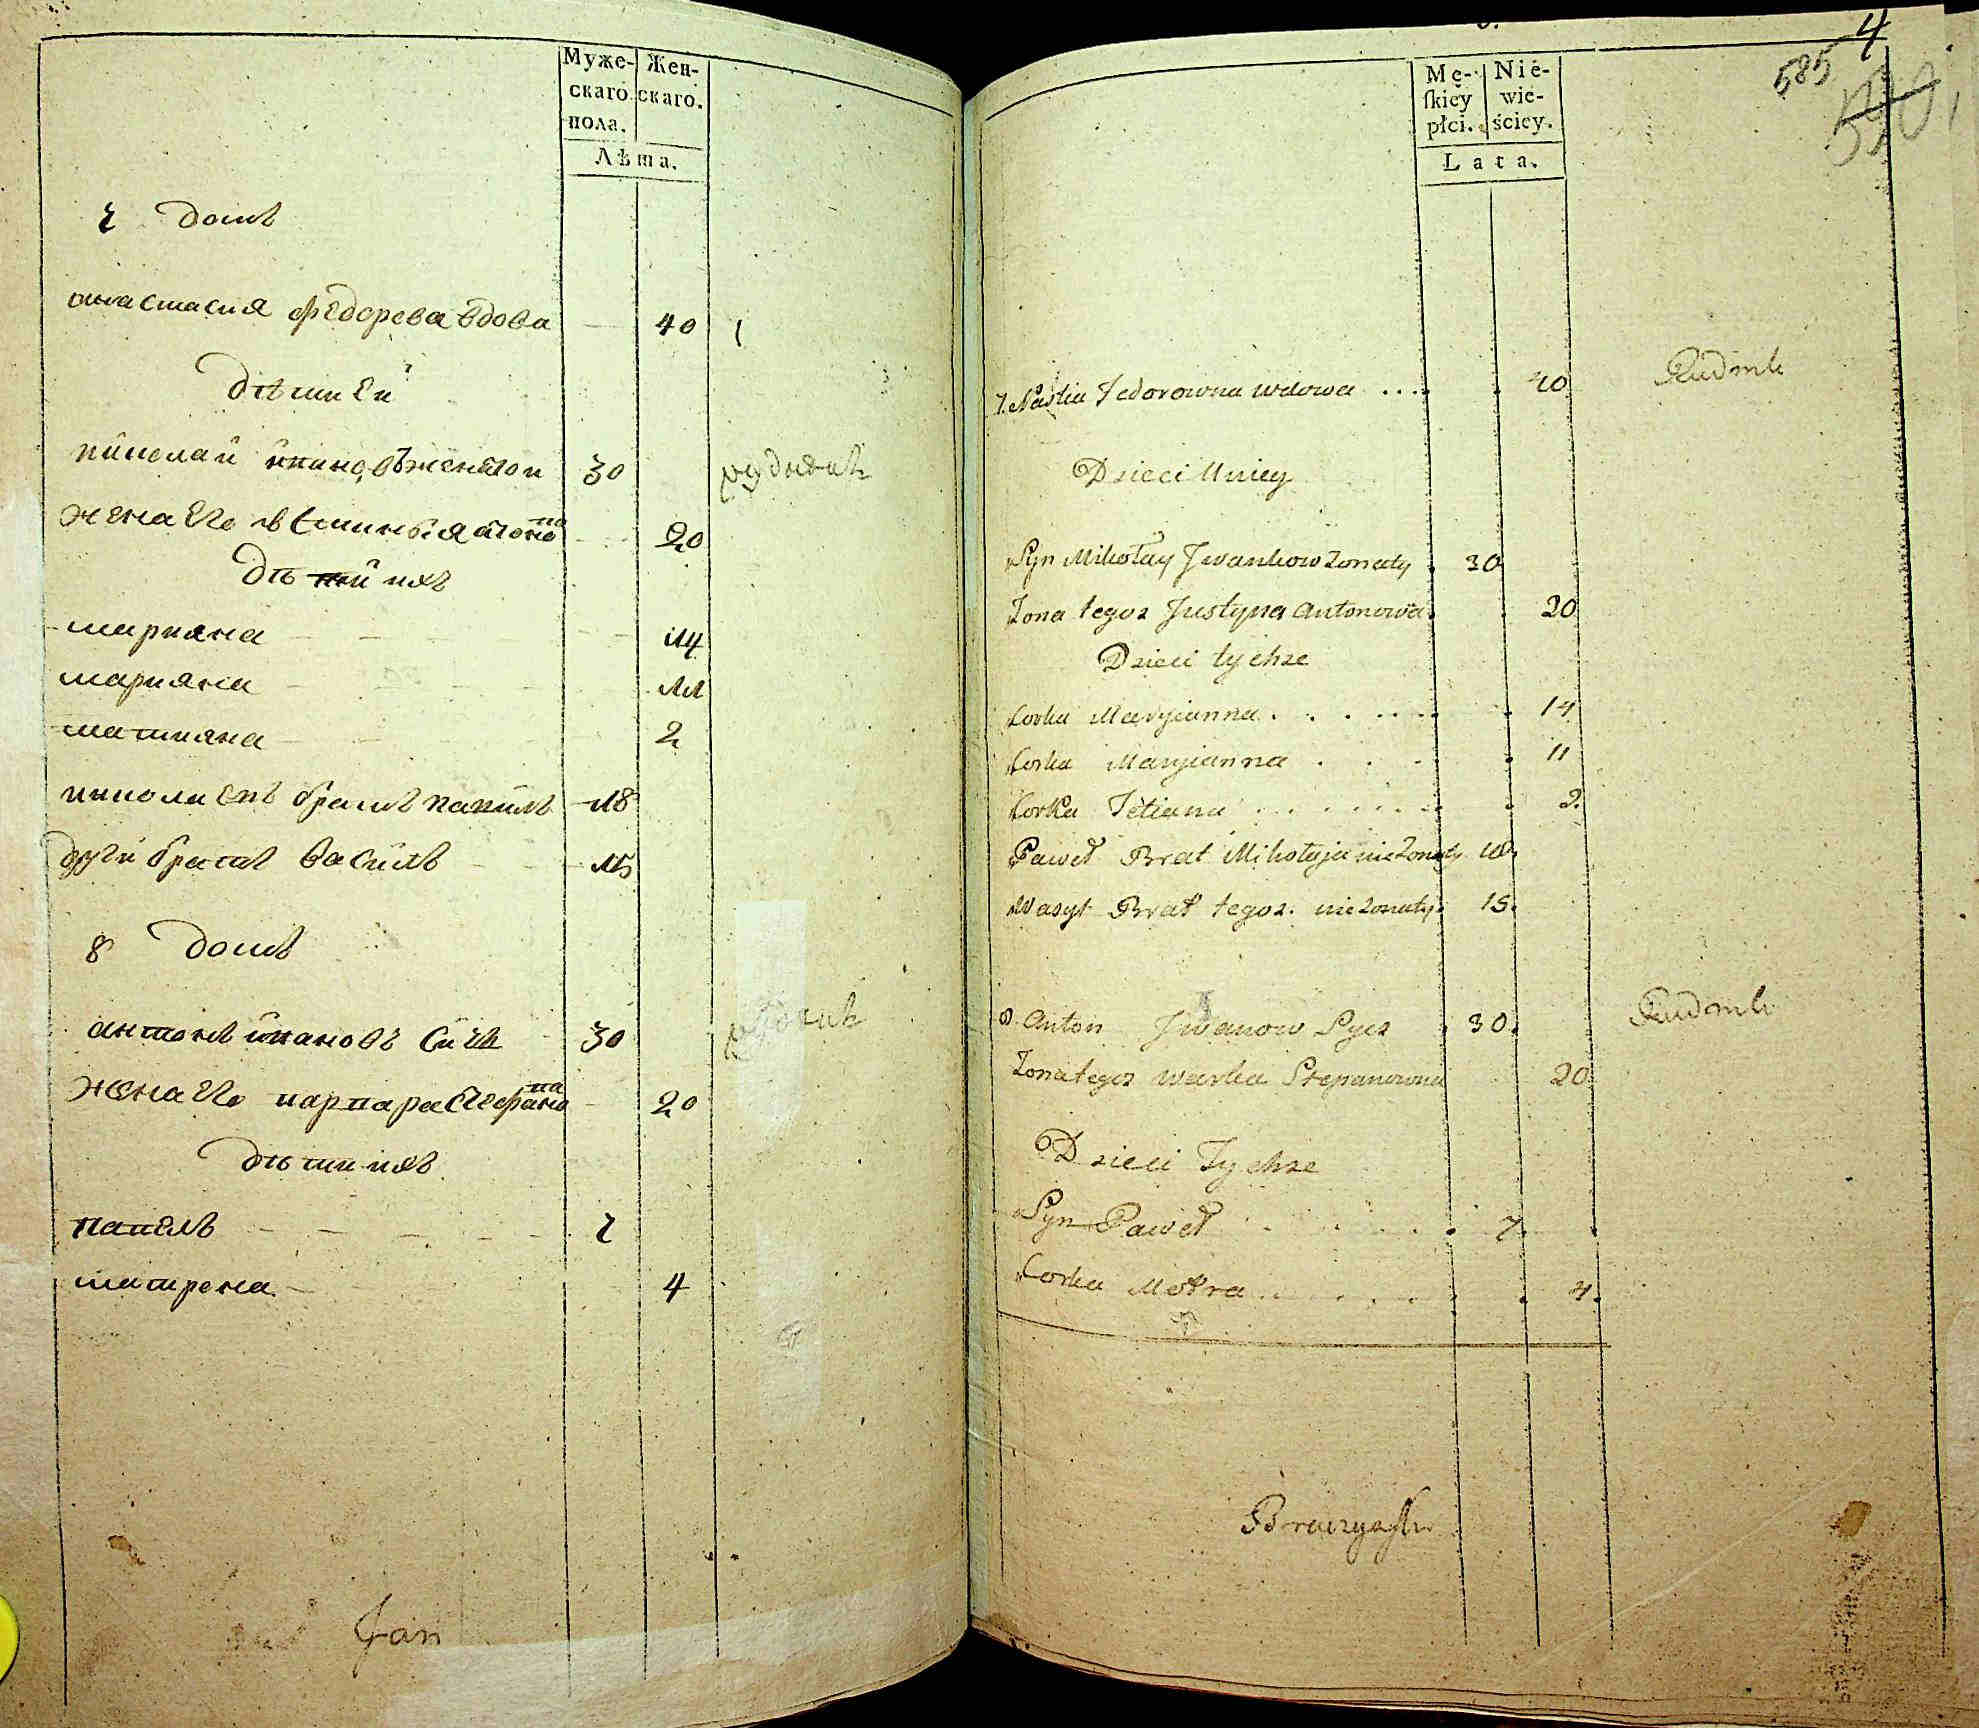 Муже-
скаго
пола.
Жен-
скаго.
Лѣта.
7 домъ
Анастасия Федорева вдова 40
дѣти Ей
николай ивановъ женатои 30
жена Его Естинья антонова 20
дѣти ихъ
марияна 14
марияна 11
татияна 2
николаевъ братъ павилъ 18
други братъ василъ 15
8 домъ
антонъ ивановъ Сичъ 30
жена Его варвара Стефанова 20
дѣти ихъ
павелъ 7
матрена 4
Jan
4
585
590
Mę-
ſkiey
płci.
Nie-
wie-
ściey.
Lata.
7. Nastia Fedorowna wdowa .... 40 Rudnik
Dzieci Uniey
Syn Mikołay Jwankow Zonaty 30
Zona tegoz Justyna Antonowa 20
Dzieci tychze
Corka Maryianna 14
Corka Maryianna 11
Corka Tetiana 2.
Paweł Brat Mikołaja nie Zonaty 18.
Wasyl Brat tegoz. nie Zonaty. 15.
8. Anton Jwanow Sycz 30. Rudnik
Zona tegoz Warka Stepanowna 20.
Dzieci Tychze
Syn Paweł 7.
Corka Motra 4.